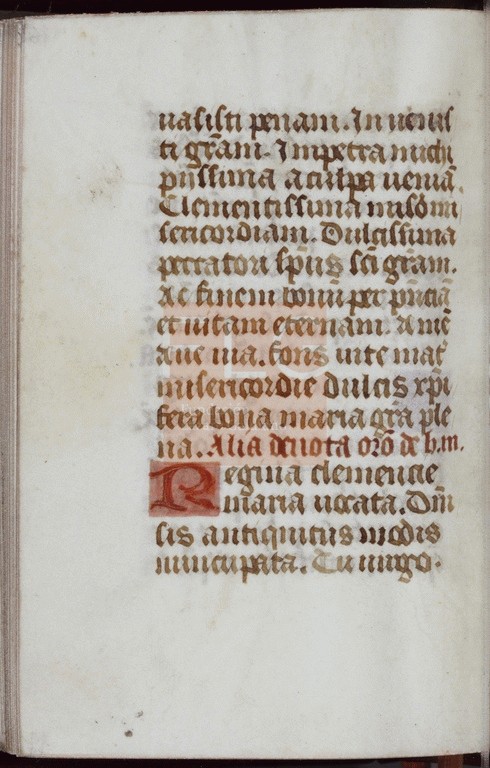 uasisti penam. In uenis
ti grãm. Impetra michi
pijssima a culpa ueniã.
Clementissima
sericordiam. Dulcissima
peccatori sp̃us sc̃i grãm.
Ac finem bonũ per pñciã
et uitam eternam. Amẽ
Aue ma. fons uite mat̃
misericordie dulcis xp̃i
fera bona maria grã ple
na. Alia deuota orõ de b.m.
Regina clemencie
maria uocata. Dm̃
sis antiquitus modis
nuncupata. Tu uirgo.